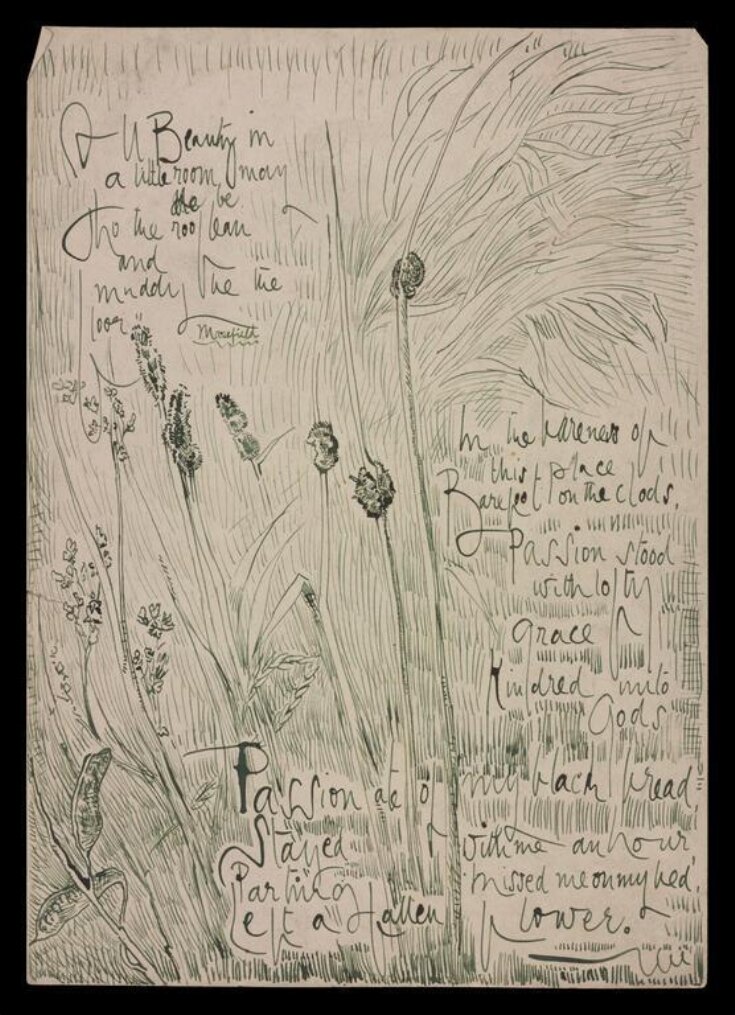 All Beauty in
a little room may
be
Tho the roof lean
and
muddy be the
floor
Masefield
In the bareness of
this place
Barefoot on the clods,
Passion stood
with lofty
grace
Kindred unto
Gods
Passion ate of my black bread,
Stayed with me an hour
Parting kissed me on my
Left a fallen flower.